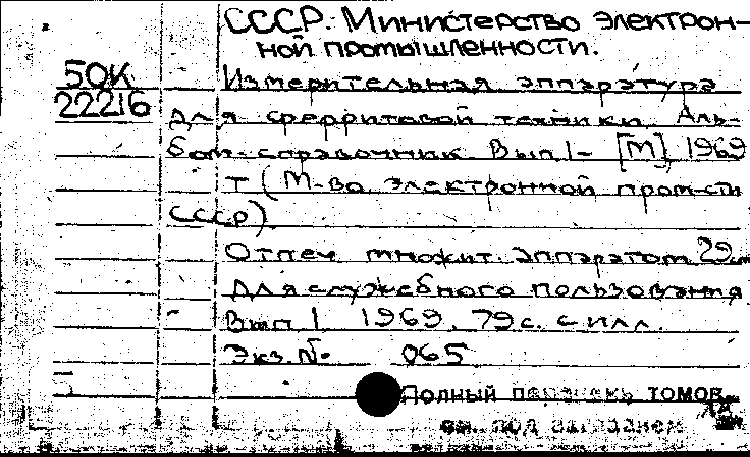 СССР. Министерство электрон-
ной промышленности.
50К
22216
Измерительная аппаратура
для ферритовой техники. Аль-
бом-справочник. Вып. 1- [М], 1969
Т (М-во электронной пром-сти
СССР).
Отпеч. множит. аппаратом 29 см
Для служебного пользования
Вып. 1. 1969. 79 с. с илл.
Экз. № 065
5
Полный перечень томов
см. под заглавием